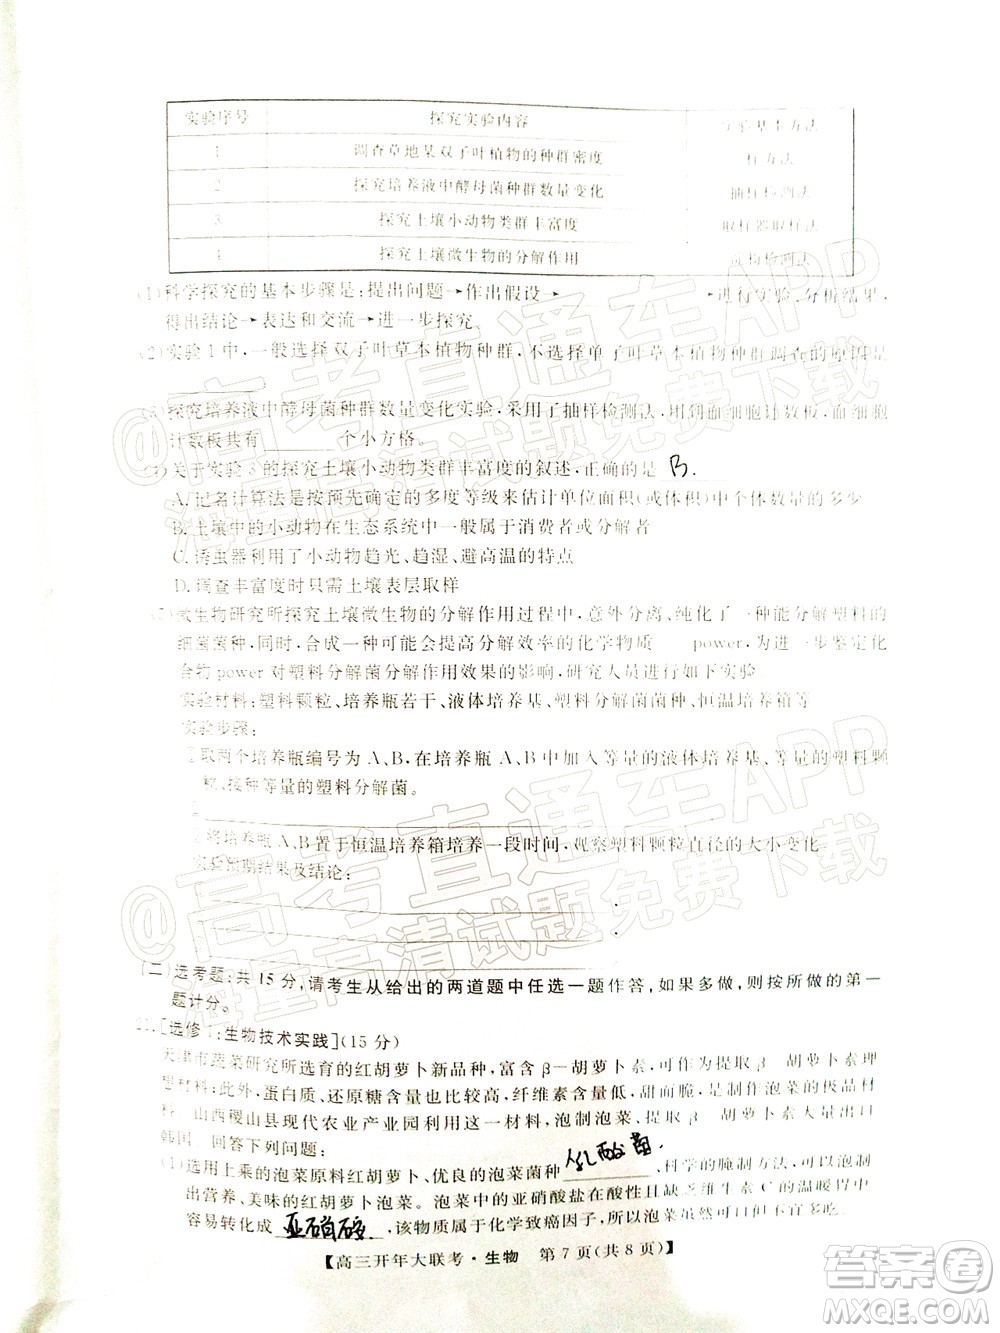 实验序号 探究实验内容 实验基本方法
1 调查草地某双子叶植物的种群密度 样方法
2 探究培养液中酵母菌种群数量变化 抽样检测法
3 探究土壤小动物类群丰富度 取样器取样法
4 探究土壤微生物的分解作用
(1)科学探究的基本步骤是:提出问题→作出假设→ →进行实验、分析结果,
得出结论→表达和交流→进一步探究。
(2)实验1中,一般选择双子叶草本植物种群,不选择单子叶草本植物种群调查的原因是
(3)探究培养液中酵母菌种群数量变化实验,采用了抽样检测法,用到血细胞计数板,血细胞
计数板共有 个小方格。
(4)关于实验3的探究土壤小动物类群丰富度的叙述,正确的是 B.
A.记名计算法是按预先确定的多度等级来估计单位面积(或体积)中个体数量的多少
B.土壤中的小动物在生态系统中一般属于消费者或分解者
C.诱虫器利用了小动物趋光、趋湿、避高温的特点
D.调查丰富度时只需土壤表层取样
微生物研究所探究土壤微生物的分解作用过程中,意外分离、纯化了一种能分解塑料的
细菌菌种,同时,合成一种可能会提高分解效率的化学物质 power,为进一步鉴定化
合物power对塑料分解菌分解作用效果的影响,研究人员进行如下实验。
实验材料:塑料颗粒、培养瓶若干、液体培养基、塑料分解菌菌种、恒温培养箱等
实验步骤:
取两个培养瓶编号为A、B,在培养瓶A、B中加入等量的液体培养基、等量的塑料颗
粒,接种等量的塑料分解菌。
将培养瓶A、B置于恒温培养箱培养一段时间,观察塑料颗粒直径的大小变化
实验预期结果及结论:
(二)选考题:共15分,请考生从给出的两道题中任选一题作答,如果多做,则按所做的第一
题计分。
[选修1:生物技术实践](15分)
天津市蔬菜研究所选育的红胡萝卜新品种,富含β-胡萝卜素,可作为提取β 胡萝卜素理
想材料;此外,蛋白质、还原糖含量也比较高,纤维素含量少,甜而脆,是制作泡菜的极品材
料。山西稷山县现代农业产业园利用这一材料,泡制泡菜、提取β 胡萝卜素大量出口
韩国。回答下列问题:
(1)选用上乘的泡菜原料红胡萝卜、优良的泡菜菌种 乳酸菌. ,科学的腌制方法,可以泡制
出营养、美味的红胡萝卜泡菜。泡菜中的亚硝酸盐在酸性且缺乏维生素C的温暖胃中
容易转化成 亚硝胺 ,该物质属于化学致癌因子,所以泡菜虽然可口但不可多吃
【高三开年大联考·生物 第7页(共8页)】
@高考直通车APP
海量高清试题免费下载
@高考直通车APP
海量高清试题免费下载
答案圈
MXQE.COM